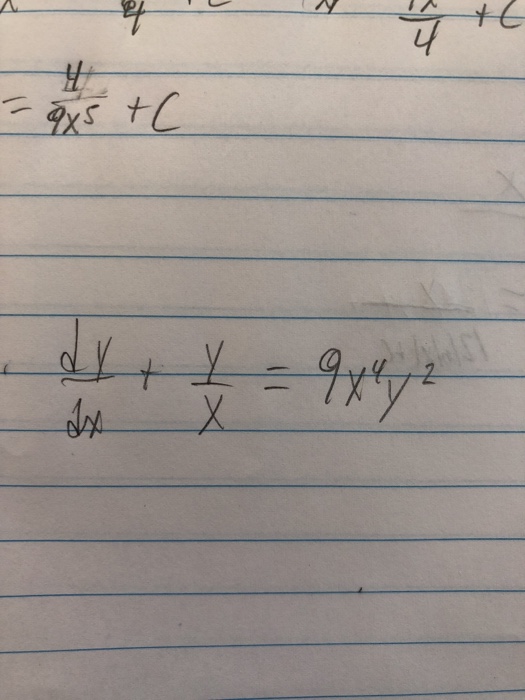 4 + C
= 4/9x⁵ + C
dy/dx + y/x = 9x⁴y²